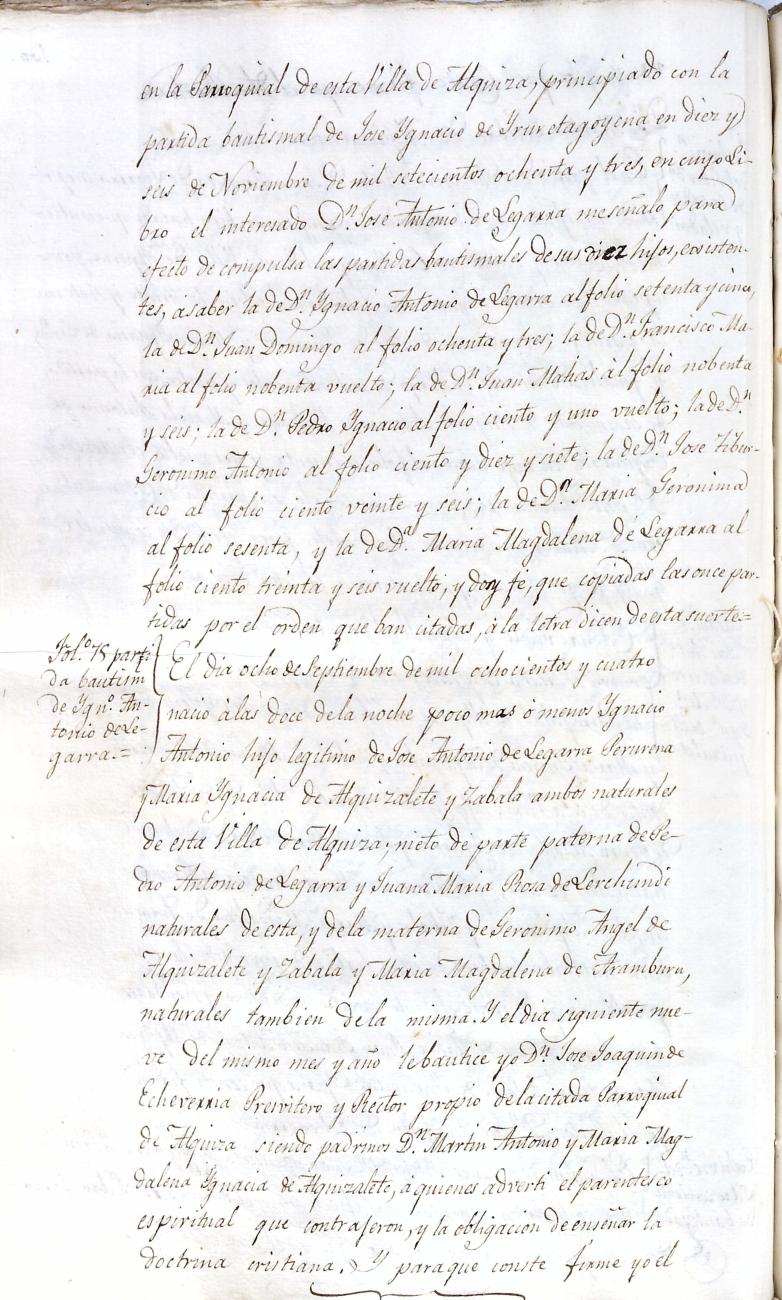 en la Parroquial de esta Villa de Alquiza, principiado con la
partida bautismal de Jose Ygnacio de Yruretagoyena en diez y
seis de Noviembre de mil setecientos ochenta y tres, en cuyo Li-
bro el interesado Dn. Jose Antonio de Legarra me señalo para
efecto de compulsa las partidas bautismales de sus diez hijos, existen-
tes, à saber la de Dn. Ygnacio Antonio de Legarra al folio setenta y cinco,
la de Dn. Juan Domingo al folio ochenta y tres; la de Dn. Francisco Ma-
ria al folio nobenta vuelto; la de Dn. Juan Matias al folio nobenta
y seis; la de Dn. Pedro Ygnacio al folio ciento y uno vuelto; la de Dn.
Geronimo Antonio al folio ciento y diez y siete; la de Dn. Jose Tibur-
cio al folio ciento veinte y seis; la de Da. Maria Geronima
al folio sesenta, y la de Da. Maria Magdalena de Legarra al
folio ciento treinta y seis vuelto, y doy fe, que copiadas las once par-
tidas por el orden que ban citadas, à la letra dicen de esta suerte=
Fol.o 75 parti
da bautism
de Ygn.o An-
tonio de Le-
garra.=
El dia ocho de Septiembre de mil ochocientos y cuatro
naciò à las doce de la noche poco mas ò menos Ygnacio
Antonio hijo legitimo de Jose Antonio de Legarra Perurena
y Maria Ygnacia de Alquizalete y Zabala ambos naturales
de esta Villa de Alquiza, nieto de parte paterna de Pe-
dro Antonio de Legarra y Juana Maria Rosa de Lerchundi
naturales de esta, y de la materna de Geronimo Angel de
Alquizalete y Zabala y Maria Magdalena de Aramburu,
naturales tambien de la misma. Y el dia siguiente nue-
ve del mismo mes y año le bautice yo Dn. Jose Joaquin de
Echeverria Presvitero y Rector propio de la citada Parroquial
de Alquiza siendo padrinos Dn. Martin Antonio y Maria Mag-
dalena Ygnacia de Alquizalete, à quienes adverti el parentesco
espiritual que contrajeron, y la obligacion de enseñar la
doctrina cristiana. Y para que conste firme yo el